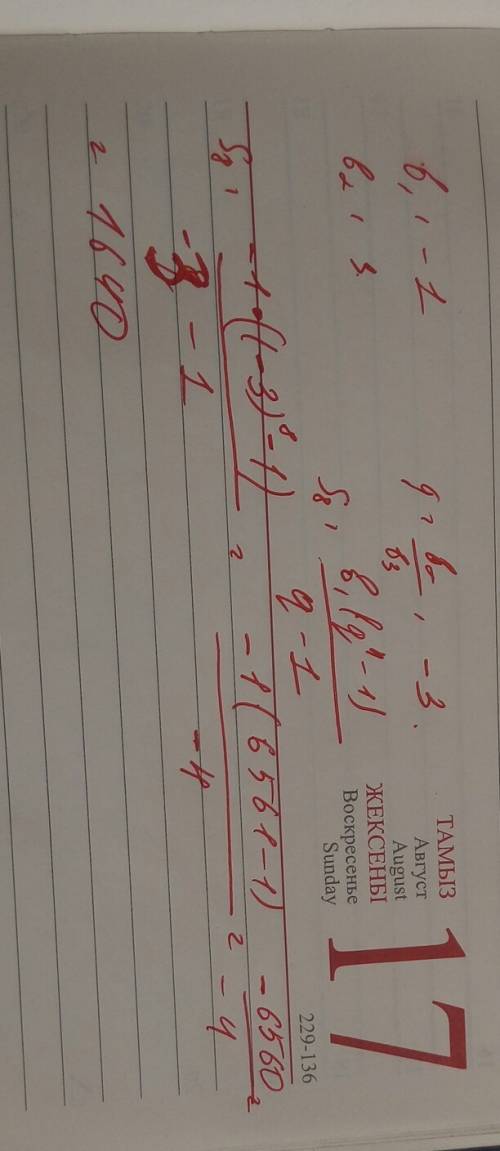 ТАМЫЗ
Август
August
ЖЕКСЕНЫ
Воскресенье
Sunday
17
229-136
b₁ = -1
b₂ = 3
q = -3.
S₈ = b₁(qⁿ-1) / q-1
S₈ = -1·((-3)⁸-1) / -3-1 = -1(6561-1) / -4 = -6560 / -4 =
= 1640